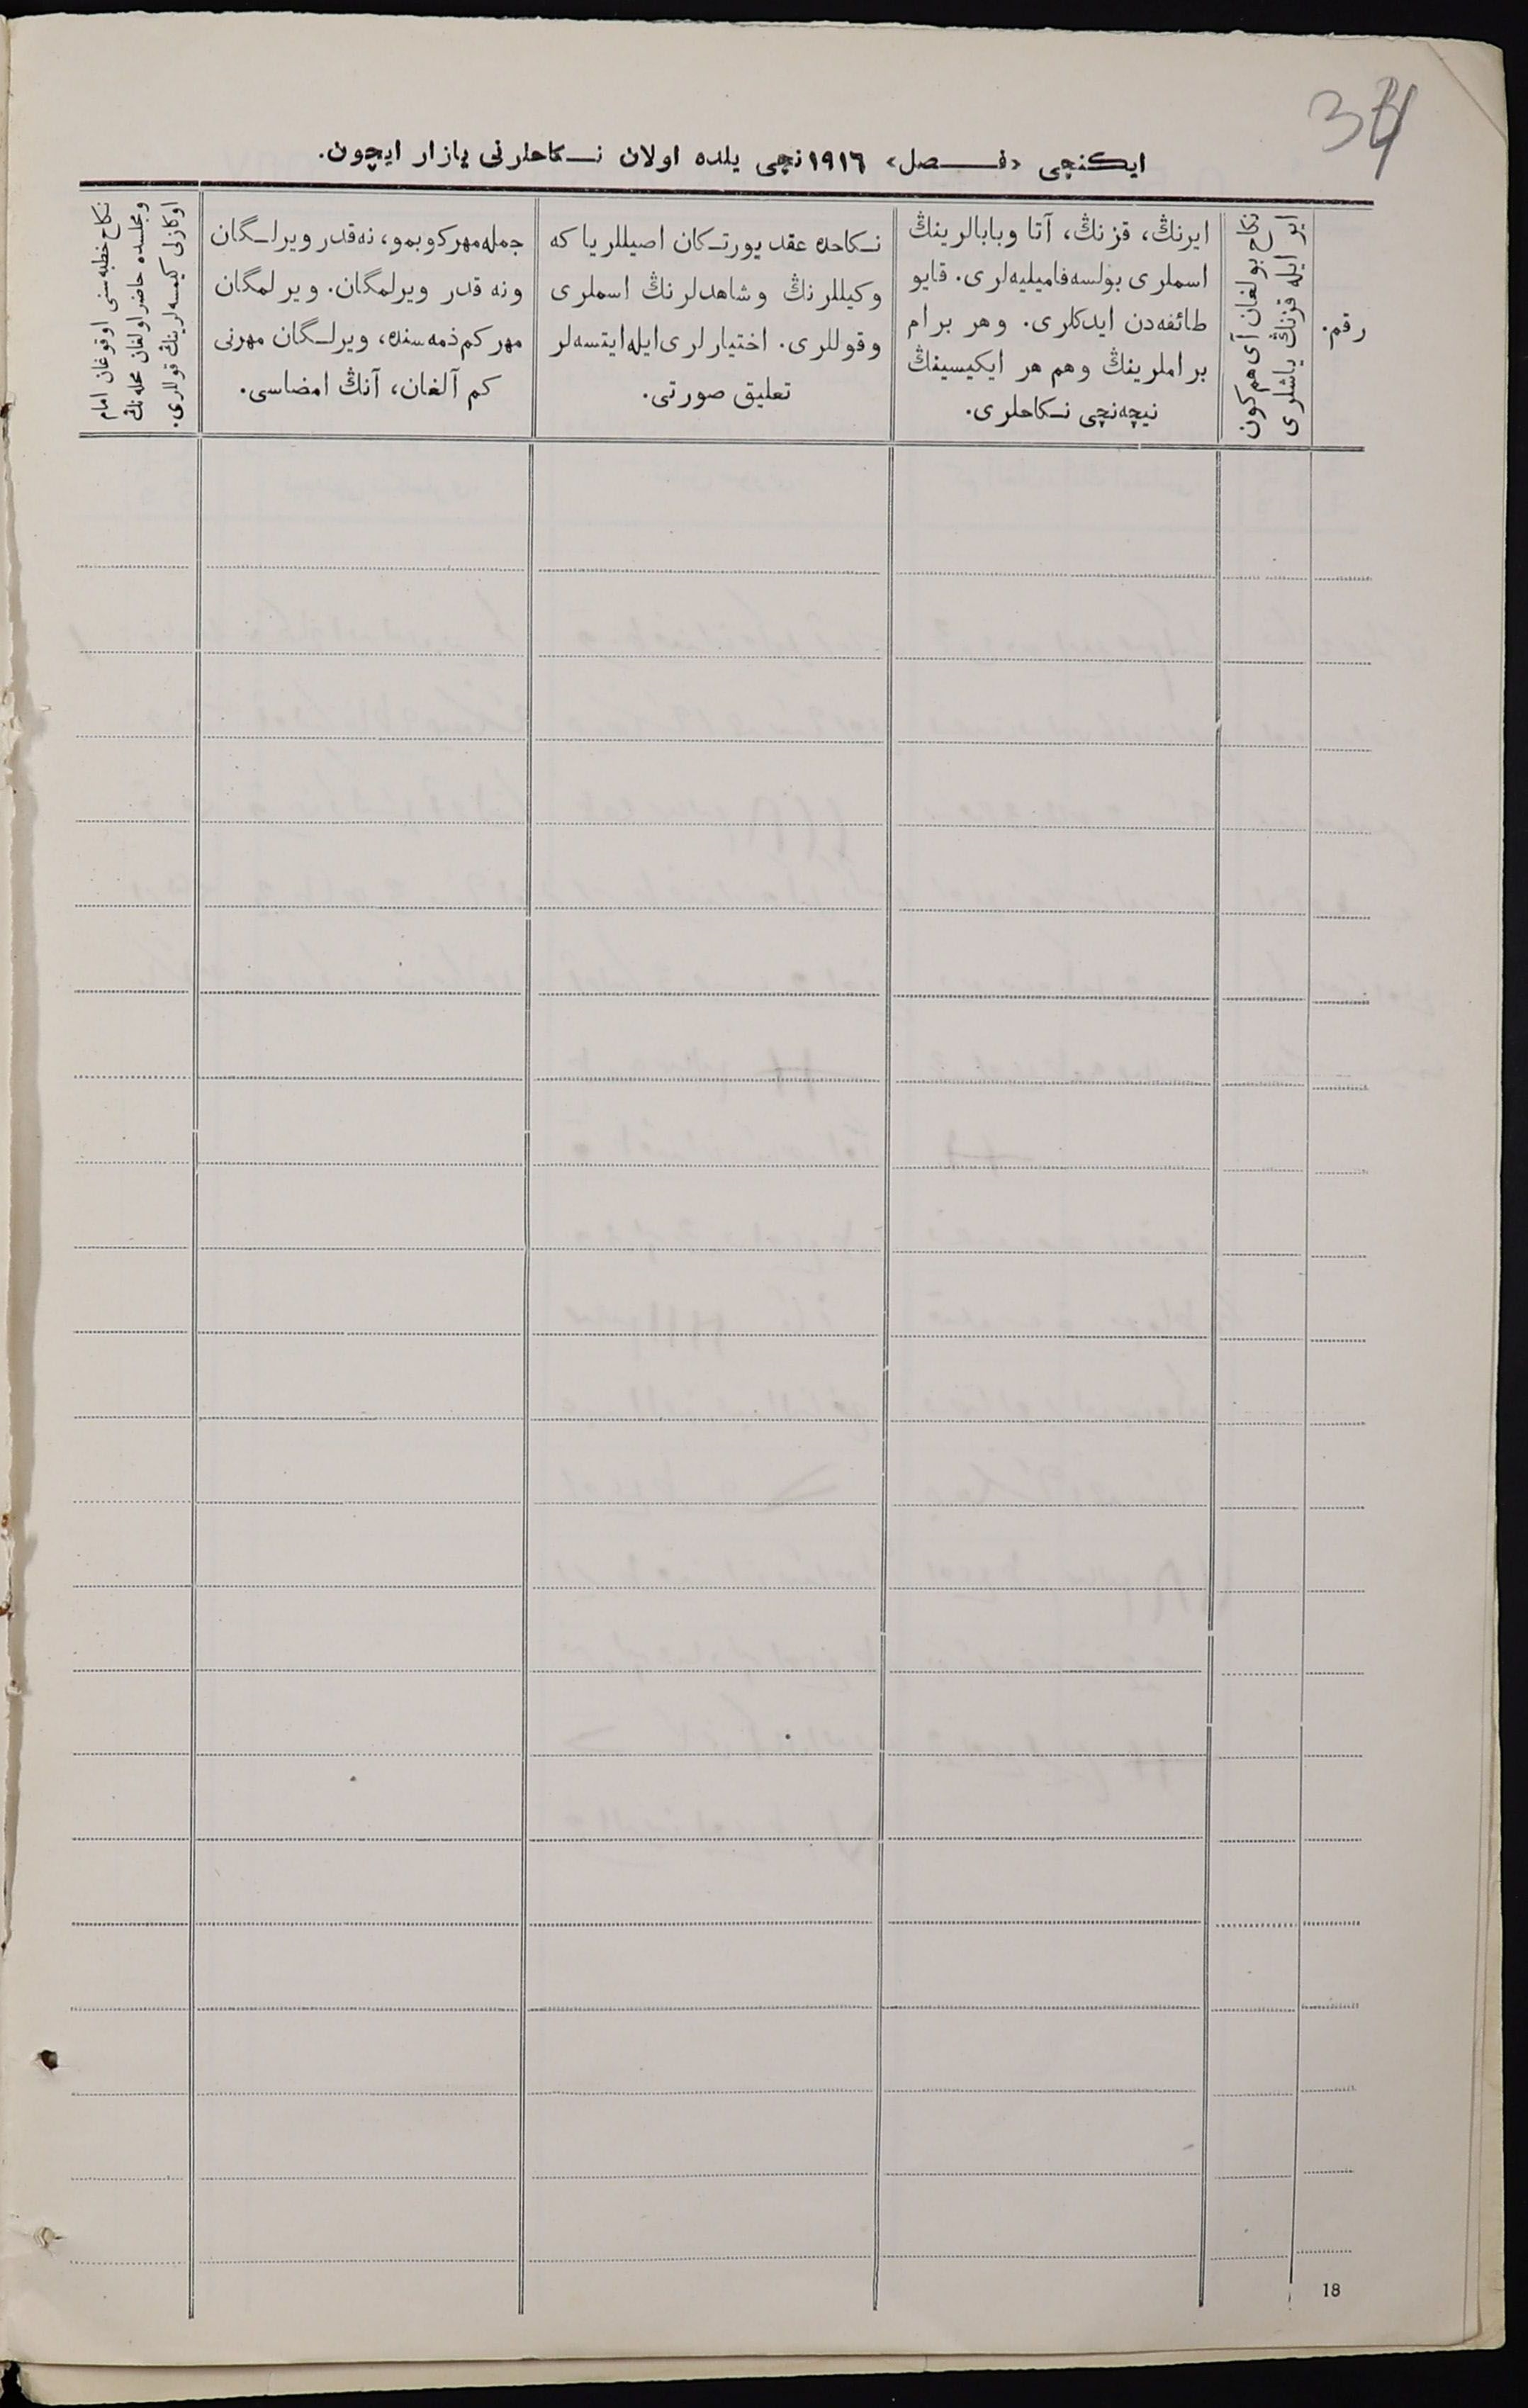 34
ایکنچی «فصل» ١٩١٦نچی یلده اولان نکاحلرنی یازار ایچون.
رقم.
ایر ایله قزنڭ یاشلری
نکاح بولغان آی هم کون
ایرنڭ، قزنڭ، آتا وبابالرینڭ
اسملری بولسه فامیلیه‌لری. قایو
طائفه‌دن ایدکلری. وهر برام
براملرینڭ وهم هر ایکیسینڭ
نیچه‌نچی نکاحلری.
نکاحده عقد یورتکان اصیللر یا که
وکیللرنڭ وشاهدلرنڭ اسملری
وقوللری. اختیارلری ایله ایتسه‌لر
تعلیق صورتی.
جمله مهر کوبمو، نه‌قدر ویرلگان
ونه قدر ویرلمگان. ویرلمگان
مهر کم ذمه‌سنده، ویرلگان مهرنی
کم آلغان، آنڭ امضاسی.
نکاح خطبه‌سنی اوقوغان امام
ومجلسده حاضر اولغان محله‌نڭ
اوکازلی کیمسه‌لرینڭ قوللری.
18